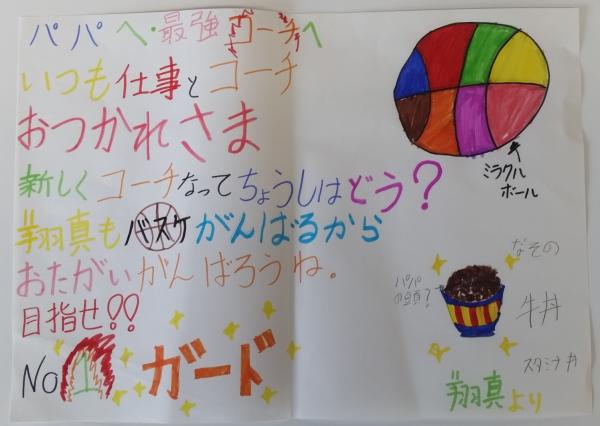 パパへ・最強コーチへ
いつも仕事とコーチ
おつかれさま
新しくコーチなってちょうしはどう？
翔真もバスケがんばるから
おたがいがんばろうね。
目指せ!!
No 1 ガード
ミラクル
ボール
なその
パパ
の頭？
牛丼
スタミナ丼
翔真より